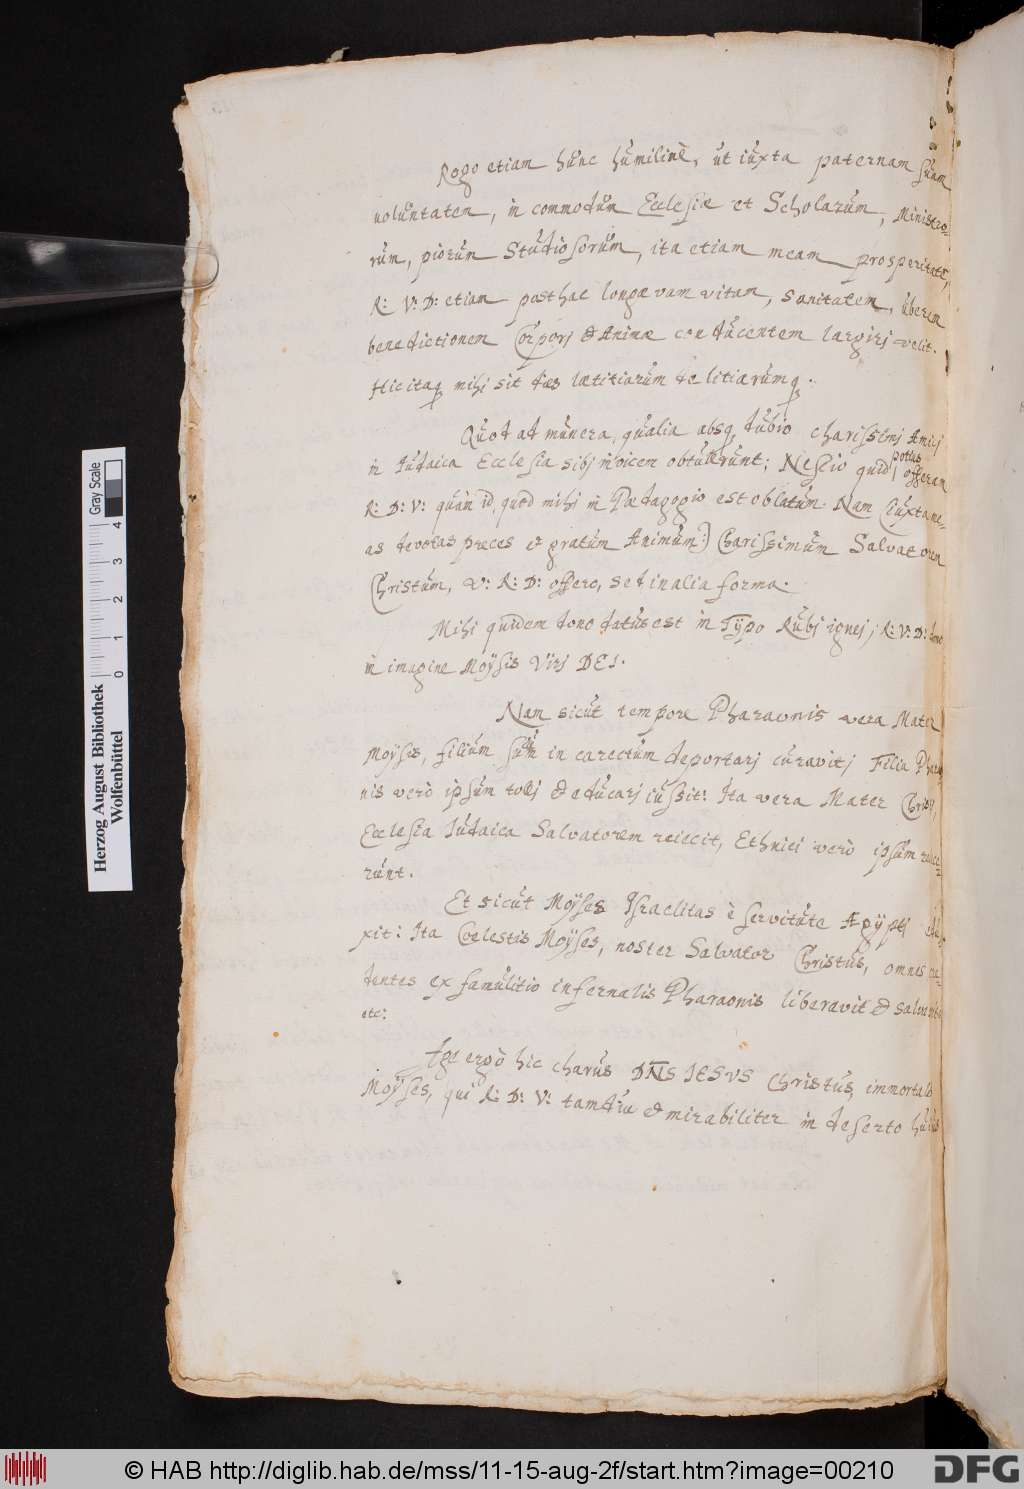 Rogo etiam hunc humilimè, ut iuxta paternam suam
voluntatem, in commodum Ecclesiæ et Scholarum, Ministro-
rum, piorum Studiosorum, ita etiam meam prosperitatē,
R: V: D: etiam posthac longævam vitam, sanitatem, uberem
benedictionem Corporj & Animæ conducentem largirj velit.
Hic itaq mihi sit dies lætitiarum delitiarumq.
Quod ad munera, qualia absq dubio charissimj Amicj
in Judaica Ecclesia sibj invicem obtulerunt; Nescio quid potius offeram
R: D: V: quàm id, quod mihi in Pædagogio est oblatum. Nam (iuxta me-
as devotas preces & gratum Animum:) Charissimum Salvatorem
Christum, V: R: D: offero, sed in alia forma.
Mihi quidem dono datus est in Tÿpo Rubj ignej; R: V: D: dono
in imagine Moÿsis Virj DEI.
Nam sicut tempore Pharaonis vera Mater
Moÿsis, filium suum in carectum deportarj curavit; Filia Pharao-
nis verò ipsum tollj & educarj iussit: Ita vera Mater Christj,
Ecclesia Judaica Salvatorem reiecit, Ethnici verò ipsum rece-
runt.
Et sicut Moÿses Israelitas è servitute Aegÿptj edu-
xit: Ita Coelestis Moÿses, noster Salvator Christus, omnes cre-
dentes ex famulitio infernalis Pharaonis liberavit & salvavit
etc:
Age ergò hic charus DNS IESVS Christus, immortalis
Moÿses, qui R: D: V: tamdiu & mirabiliter in deserto huius
Herzog August Bibliothek
Wolfenbüttel
0 1 2 3 4
Gray Scale
© HAB http://diglib.hab.de/mss/11-15-aug-2f/start.htm?image=00210
DFG